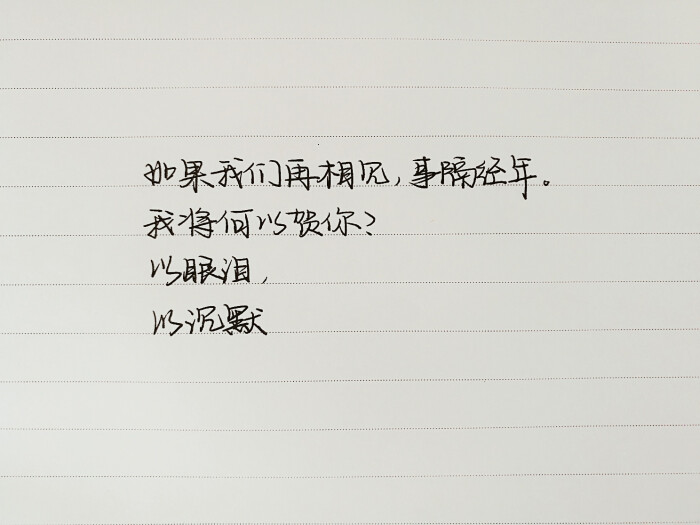 如果我们再相见,事隔经年。
我将何以贺你?
以眼泪,
以沉默